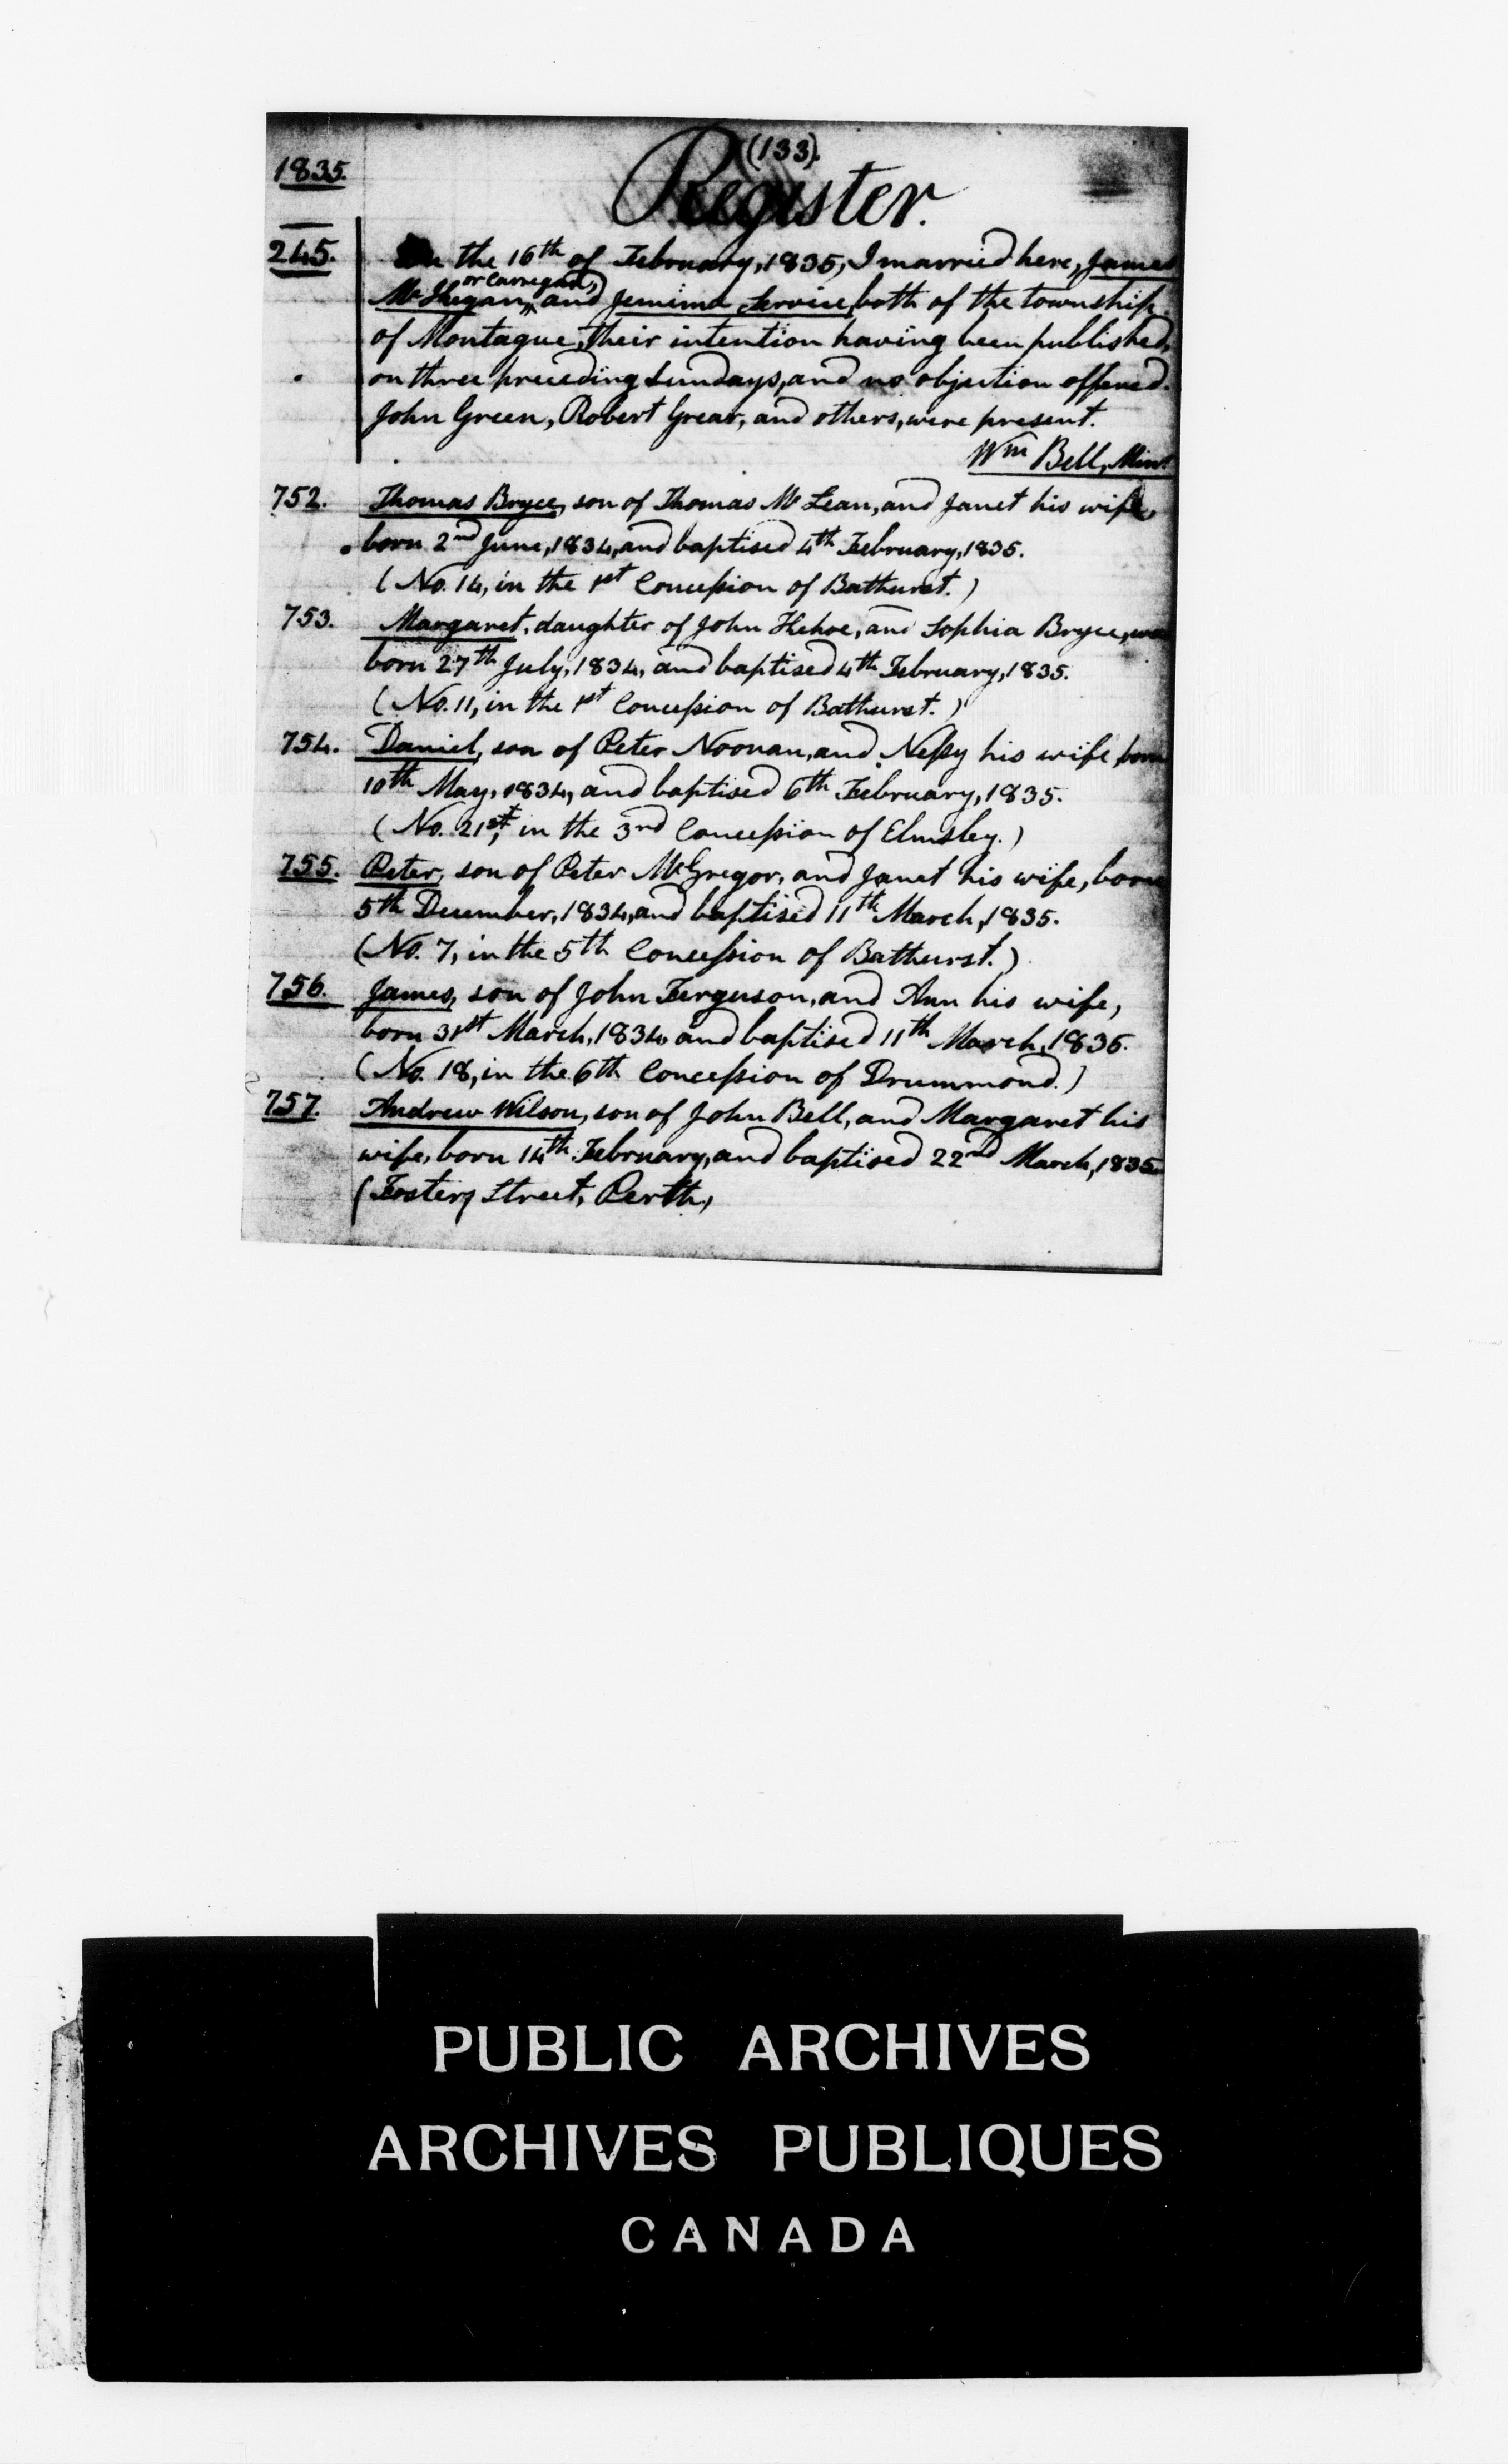 (133).
1835. Register.
245. On the 16th of February, 1835, I married here, James
or Carnegan,
McKegan, and Jemima Service, both of the township
of Montague, their intention having been published,
on three preceding Sundays, and no objection offered.
John Green, Robert Grear, and others, were present.
Wm Bell, Minr
752. Thomas Bryce, son of Thomas McLean, and Janet his wife,
born 2nd June, 1834, and baptised 4th February, 1835.
(No. 14, in the 1st Concession of Bathurst.)
753. Margaret, daughter of John Kehoe, and Sophia Bryce, was
born 27th July, 1834, and baptised 4th February, 1835.
(No. 11, in the 1st Concession of Bathurst.)
754. Daniel, son of Peter Noonan, and Nessy his wife, born
10th May, 1834, and baptised 6th February, 1835.
(No. 21st, in the 3rd Concession of Elmsley.)
755. Peter, son of Peter McGregor, and Janet his wife, born
5th December, 1834, and baptised 11th March, 1835.
(No. 7, in the 5th Concession of Bathurst.)
756. James, son of John Ferguson, and Ann his wife,
born 31st March, 1834, and baptised 11th March, 1835.
(No. 18, in the 6th Concession of Drummond.)
757. Andrew Wilson, son of John Bell, and Margaret his
wife, born 14th February, and baptised 22nd March, 1835.
(Foster, Street, Perth,)
PUBLIC ARCHIVES
ARCHIVES PUBLIQUES
CANADA